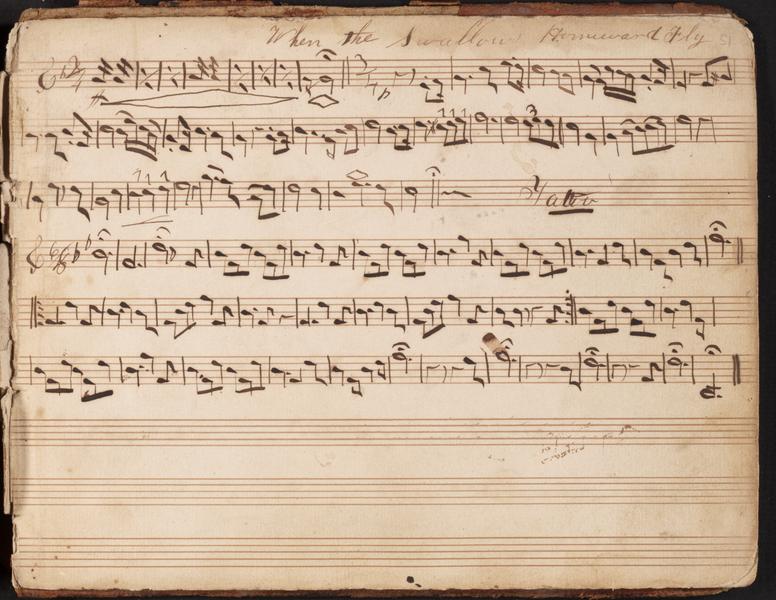 When the Swallows Homeward Fly 51
Tattoo